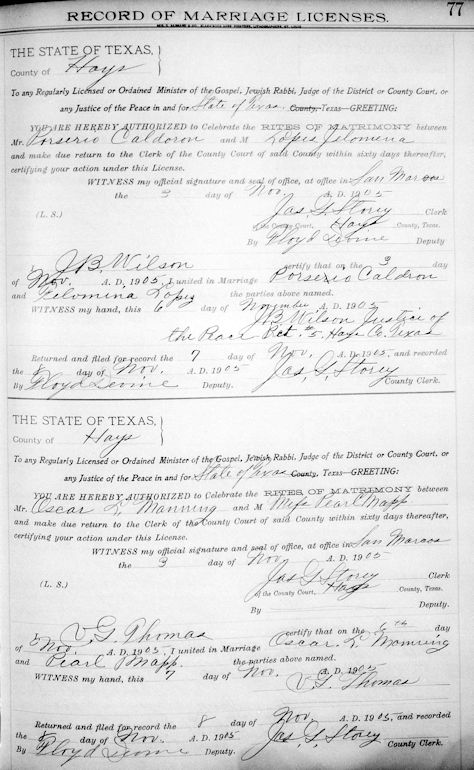 RECORD OF MARRIAGE LICENSES.
77
THE STATE OF TEXAS,
County of Hays
To any Regularly Licensed or Ordained Minister of the Gospel, Jewish Rabbi, Judge of the District or County Court, or
any Justice of the Peace in and for State of Texas County, Texas—GREETING:
YOU ARE HEREBY AUTHORIZED to Celebrate the RITES OF MATRIMONY between
Mr. Porserio Caldoron and M Lopis Jelomena
and make due return to the Clerk of the County Court of said County within sixty days thereafter,
certifying your action under this License.
WITNESS my official signature and seal of office, at office in San Marcos
the 3 day of Nov. A. D. 1905
(L. S.) Jas. G. Storey Clerk
of the County Court, Hays County, Texas.
By Floyd Deputy
I, J. B. Wilson certify that on the 3 day
of Nov. A. D. 1905, I united in Marriage Porserio Caldron
and Felomina Lopez the parties above named.
WITNESS my hand, this 6 day of November A. D. 1905
J B Wilson Justice of
the Peace Pct. #5, Hays Co. Texas
Returned and filed for record the 7 day of Nov. A. D. 1905, and recorded
the 8 day of Nov. A. D. 1905 Jas. G. Storey
By Floyd Deputy. County Clerk.
THE STATE OF TEXAS,
County of Hays
To any Regularly Licensed or Ordained Minister of the Gospel, Jewish Rabbi, Judge of the District or County Court, or
any Justice of the Peace in and for State of Texas County, Texas—GREETING:
YOU ARE HEREBY AUTHORIZED to Celebrate the RITES OF MATRIMONY between
Mr. Oscar L. Manning and M Miss Pearl Mapp
and make due return to the Clerk of the County Court of said County within sixty days thereafter,
certifying your action under this License.
WITNESS my official signature and seal of office, at office in San Marcos
the 3 day of Nov A. D. 1905
(L. S.) Jas. G. Storey Clerk
of the County Court, Hays County, Texas.
By Deputy.
I, V. G. Thomas certify that on the 6th day
of Nov. A. D. 1905, I united in Marriage Oscar L. Manning
and Pearl Mapp. the parties above named.
WITNESS my hand, this 7 day of Nov. A. D. 1905
V. G. Thomas
Returned and filed for record the 8 day of Nov. A. D. 1905, and recorded
the 8 day of Nov. A. D. 1905 Jas. G. Storey
By Floyd Deputy. County Clerk.